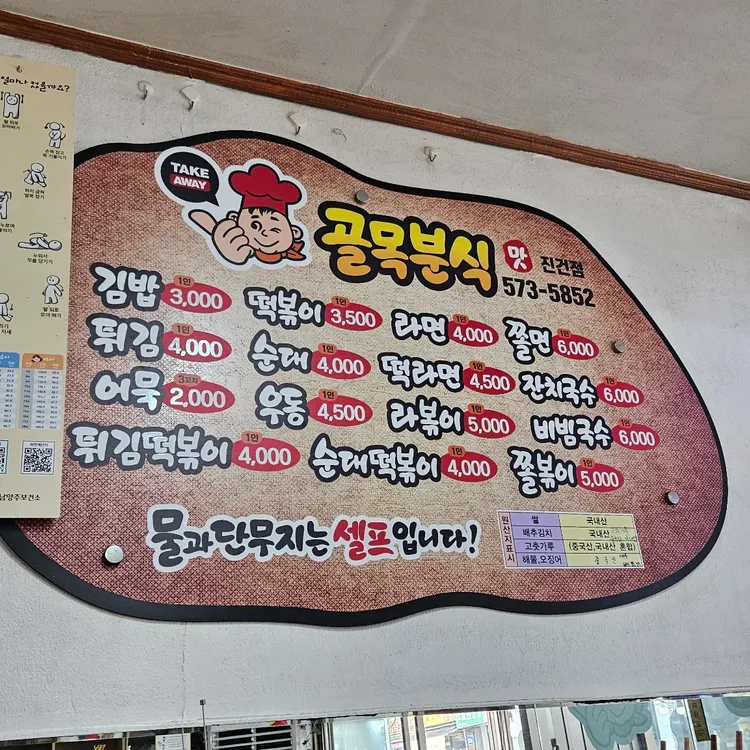 얼마나 컸을까요?
남양주보건소
TAKE
AWAY
골목분식 맛 진건점
573-5852
김밥 1인 3,000 떡볶이 1인 3,500 라면 1인 4,000 쫄면 1인 6,000
튀김 1인 4,000 순대 1인 4,000 떡라면 1인 4,500 잔치국수 1인 6,000
어묵 3꼬치 2,000 우동 1인 4,500 라볶이 1인 5,000 비빔국수 1인 6,000
튀김떡볶이 1인 4,000 순대떡볶이 1인 4,000 쫄볶이 1인 5,000
물과단무지는 셀프입니다!
원산지표시
쌀 국내산
배추김치 국내산
고춧가루 (중국산,국내산 혼합)
해물,오징어